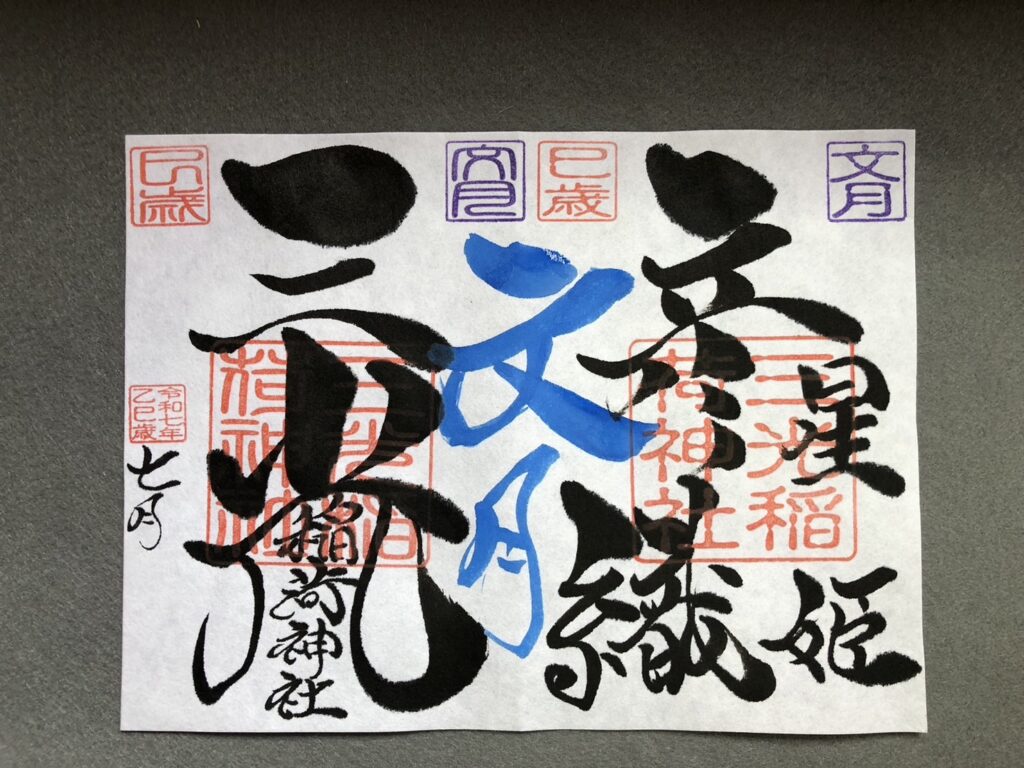 文月
彦星
織姫
三光稲
荷神社
巳歳
文月
文月
三光
稲荷神社
三光稲
荷神社
巳歳
令和七年
乙巳歳
七月